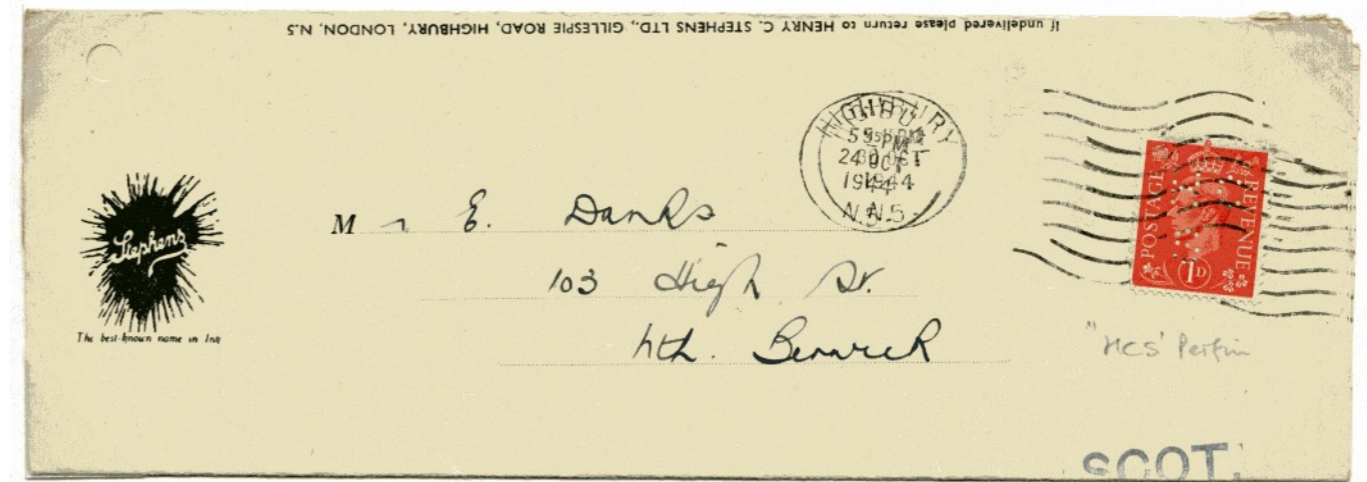 If undelivered please return to HENRY C. STEPHENS LTD., GILLESPIE ROAD, HIGHBURY, LONDON, N.5
HIGHBURY
24 OCT
1944
N.5.
POSTAGE REVENUE
1D
Stephens
The best-known name in Ink
Mr E. Danks
103 High St.
Nth. Berwick
"HCS' Perfin
SCOT.